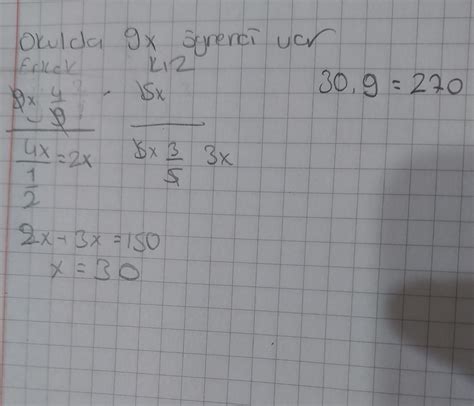 Okulda 9x öğrenci var
Erkek Kız
9x 4/9 . 5x 30.9=270
4x 1/2 =2x 5x 3/5 3x
2x+3x=150
x=30